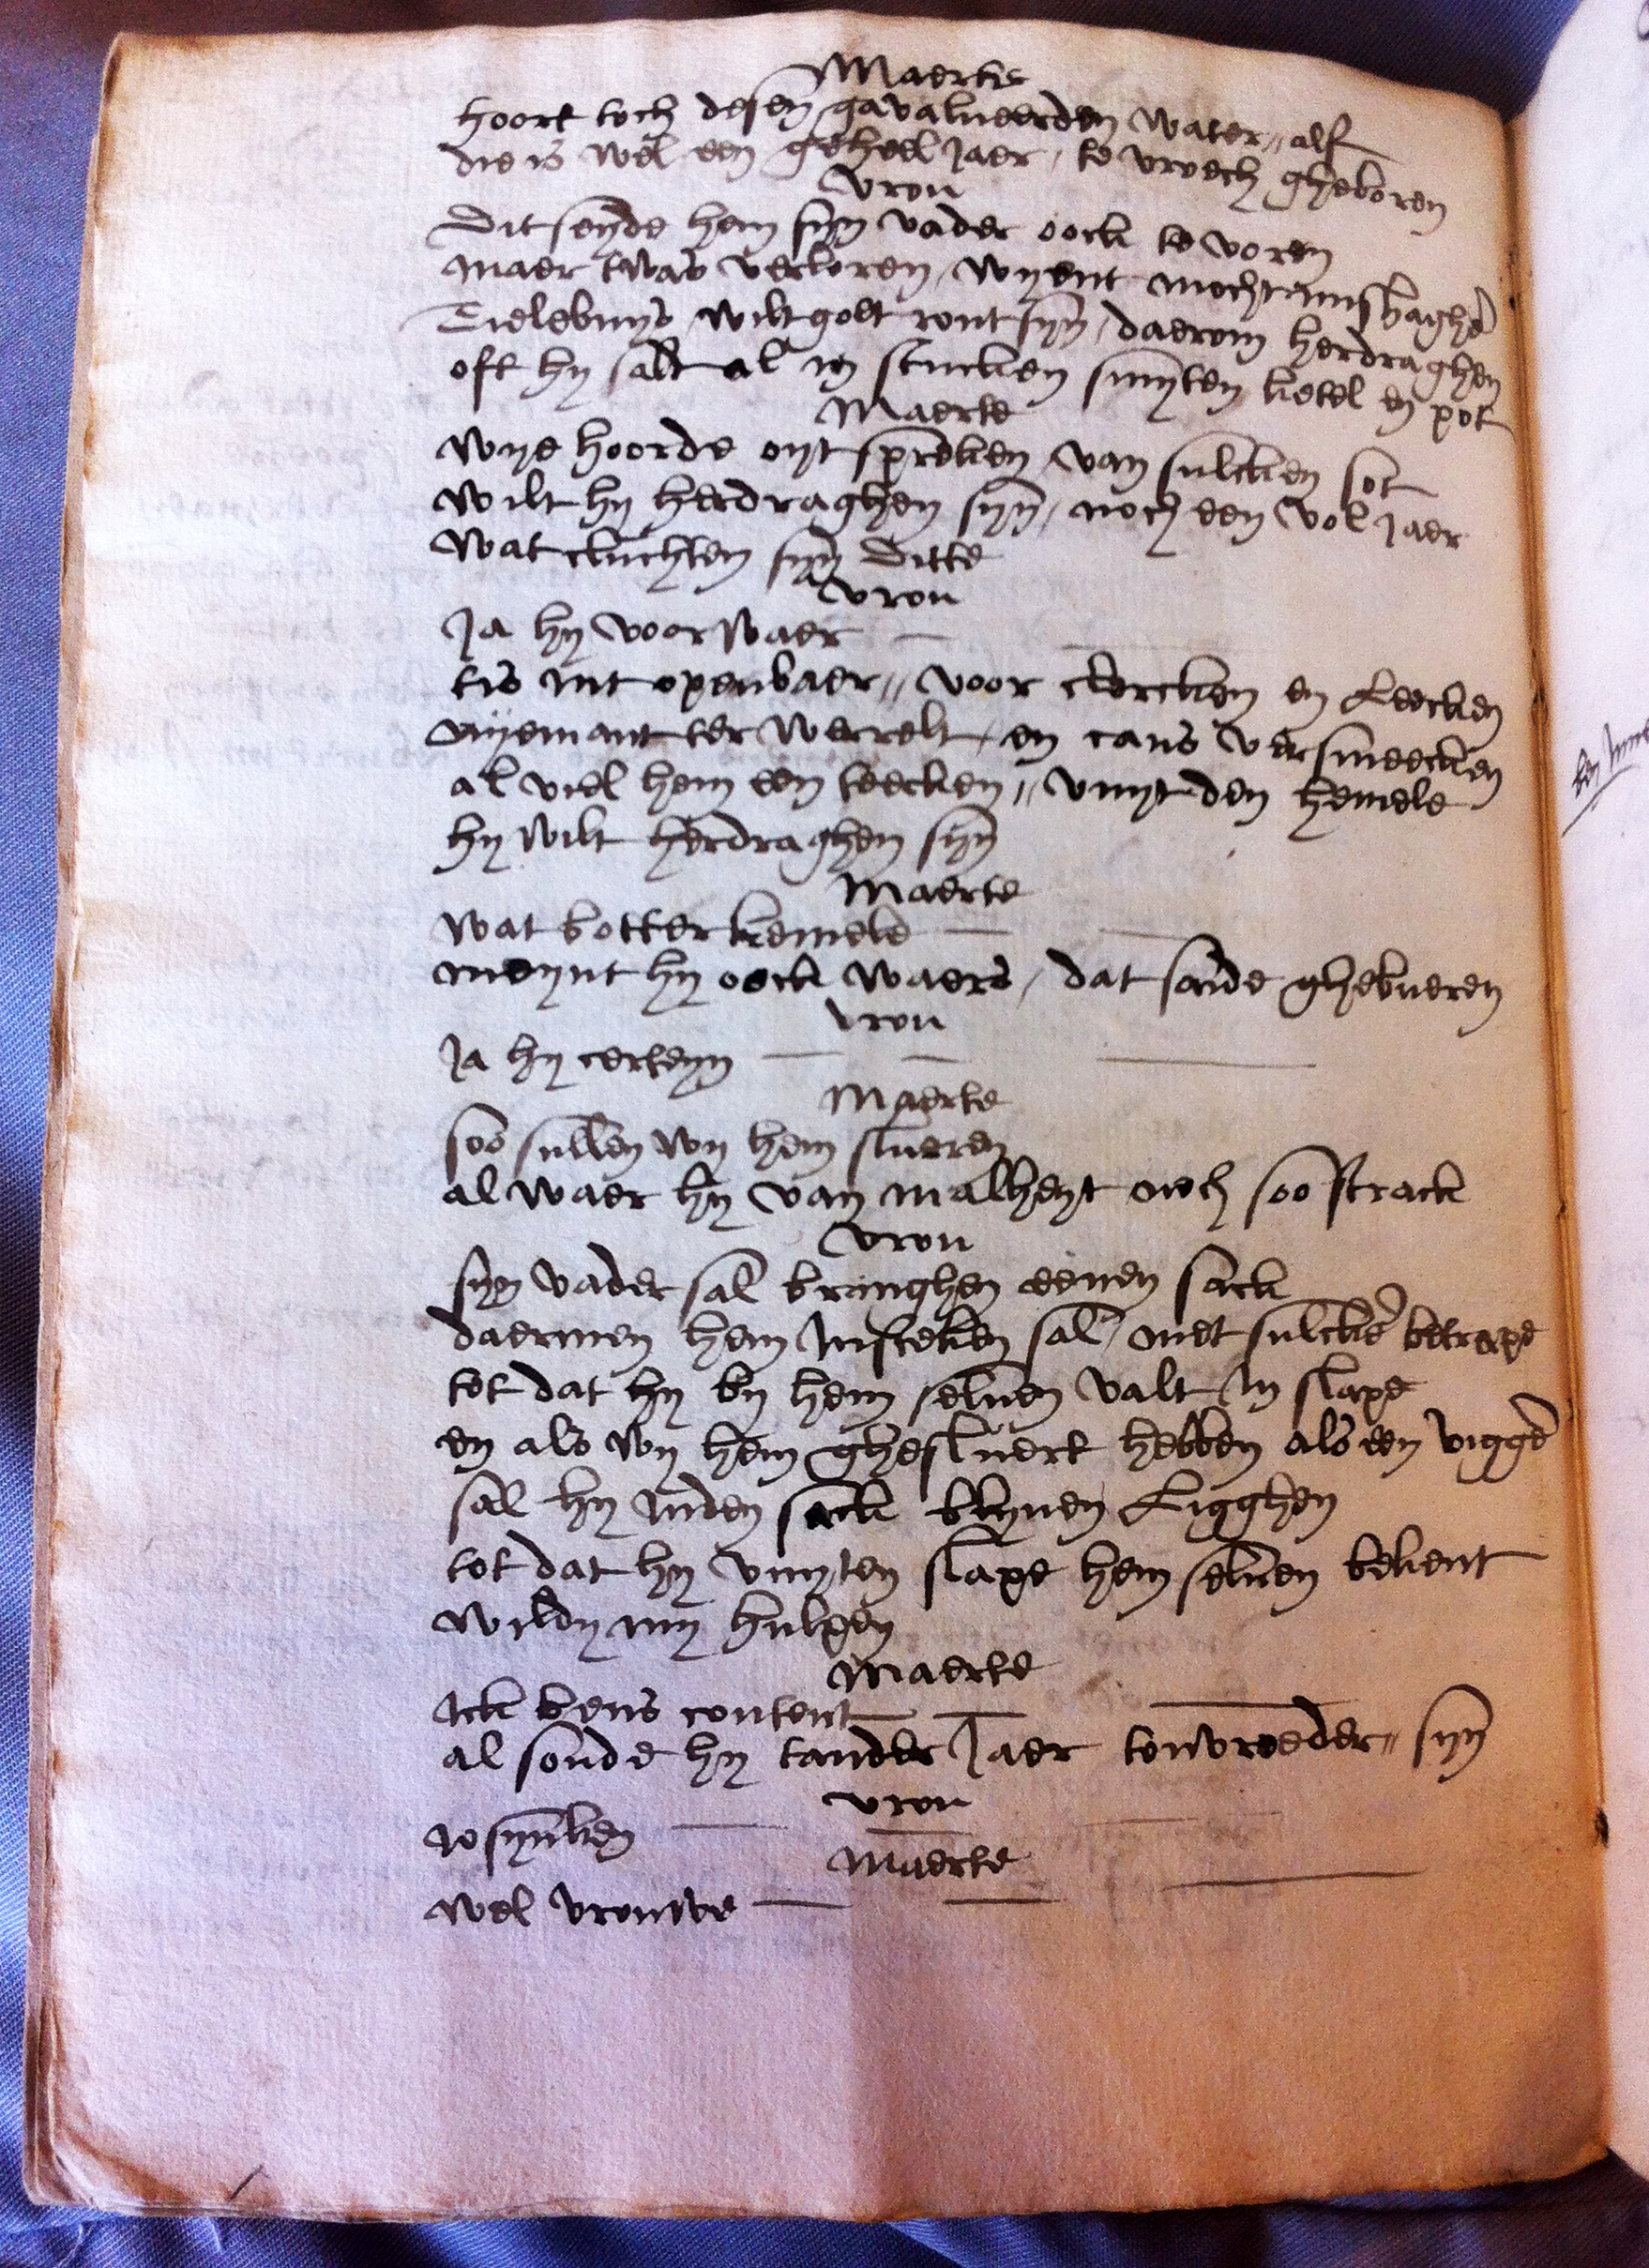 Maerte
hoort toch desen gavalueerden water // alf
die is wel een geheel Jaer / te vroech gheboren
vrou
Dit seyde hem syn vader oock te voren
maer twas verloren / wyent mocht mishaghen
Tielebuys wilt golt ront syn / daerom herdraghen
oft hy salt al in stucken smyten ketel en pot
Maerte
wye hoorde oyt spreken van sulcken sot
wilt hy herdraghen syn / noch een vol Jaer
wat cluchten syn ditte
vrou
Ja hy voorwaer
tis int openbaer // voor clercken en Leecken
nyemant ter werrelt / en cans versmeecken
al viel hem een teecken // vuyt den hemele
hy wilt herdraghen syn
Maerte
wat botter kemele
meynt hy oock waers / dat soude ghebueren
vrou
Ja hy certeyn
Maerte
soo sullen wy hem stueren
al waer hy van malheyt noch soo strack
vrou
syn vader sal bringhen eenen sack
daermen hem Insteken sal / met sulcken betrape
tot dat hy by hem seluen valt In slape
en als wy hem ghestuert hebben als een vigghe
sal hy Inden sack blyuen Ligghen
tot dat hy vuyten slape hem seluen bekent
wildy my hulpen
Maerte
Ick bens content
al soude hy tander Jaer tonvreeder // syn
vrou
Rosynken
Maerte
wel vrouwe